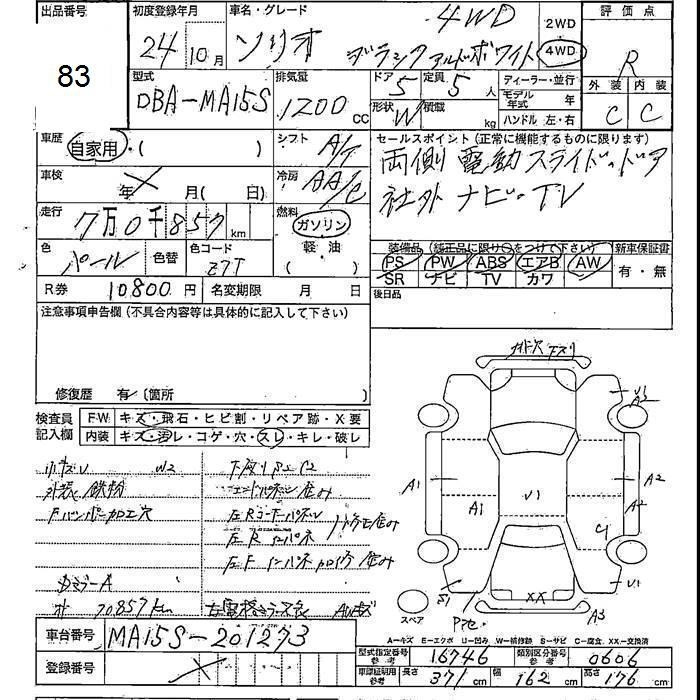 出品番号 83
初度登録年月 24年10月
車名・グレード ソリオ 4WD
ブラック&ホワイト
2WD
4WD
評価点 R
型式 DBA-MA15S
排気量 1200 CC
ドア 5
定員 5人
形状 W
積載 kg
ディーラー・並行
モデル年式 年
ハンドル 左・右
外装 内装
C C
車歴 自家用・( )
シフト A/T
セールスポイント(正常に機能するものに限ります)
両側電動スライドドア
社外ナビ・TV
車検 年 月( 日)
冷房 AA/C
走行 7万0千857km
燃料 ガソリン
軽・油
( )
色 パール
色替
色コード Z7T
装備品(純正品に限り○をつけて下さい)
PS PW ABS エアB AW
SR ナビ TV カワ
新車保証書
有・無
R券 10800円
名変期限 月 日
後日品
注意事項申告欄(不具合内容等は具体的に記入して下さい)
修復歴 有/(箇所 )
検査員記入欄
FW キズ・飛石・ヒビ割・リペア跡・X要
内装 キズ・汚レ・コゲ・穴・スレ・キレ・破レ
小キズU W2
外装 鉄粉
Fバンパー加工穴
70857km
A1 A1 U1 A2 A2 U1 C1 U1 S1 XX A3
スペア
A-キズ E-エクボ U-凹み W-補修跡 S-サビ C-腐食 XX-交換済
車台番号 MA15S-201273
登録番号
型式指定番号 参考 16746
類別区分番号 参考 0606
車庫証明用 参考 長さ 371cm 幅 162cm 高さ 176cm